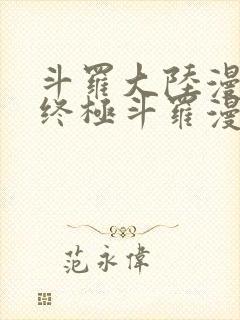 斗羅大陸漫
终極斗羅漫
范永偉